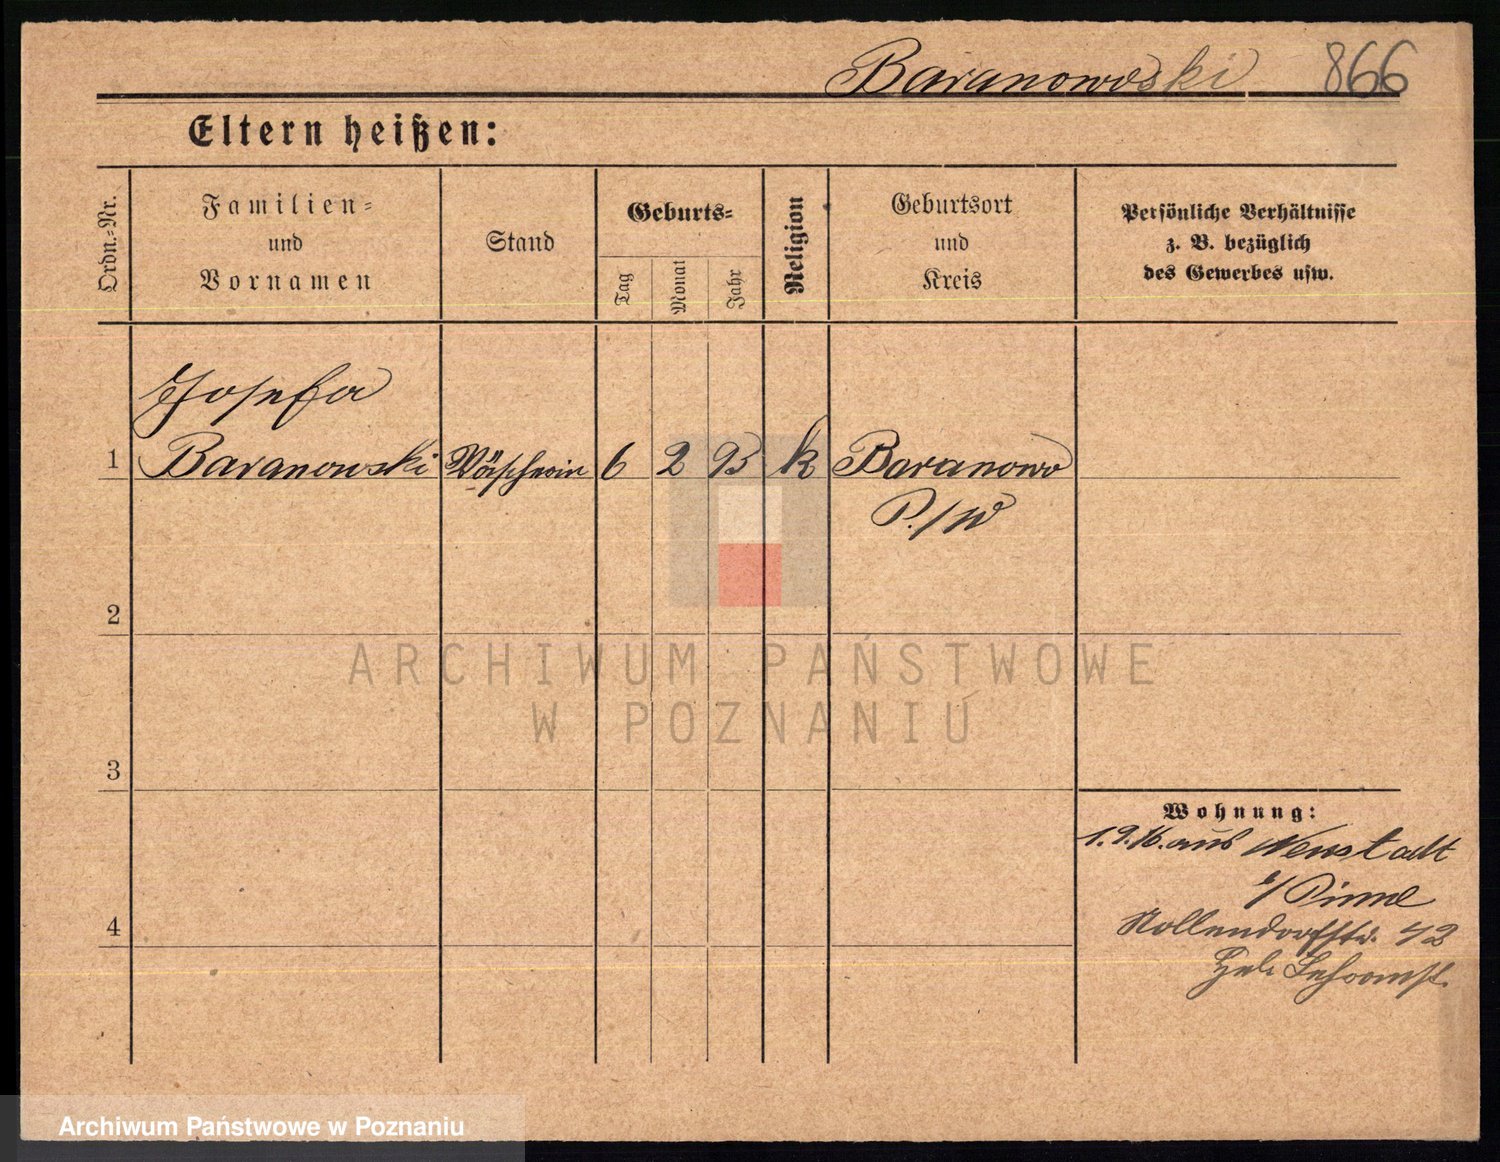 Baranowski 866
Eltern heißen:
Ordn.=Nr.
Familien=
und
Vornamen
Stand
Geburts=
Tag
Monat
Jahr
Religion
Geburtsort
und
Kreis
Persönliche Verhältnisse
z. B. bezüglich
des Gewerbes usw.
Josefa
1 Baranowski Wäscherin 6 2 93 k Baranowo
P./W
2
ARCHIWUM PAŃSTWOWE
W POZNANIU
3
Wohnung:
1.9.16. aus Neustadt
b/ Pinne
4
Nollendorfstr. 42
Archiwum Państwowe w Poznaniu